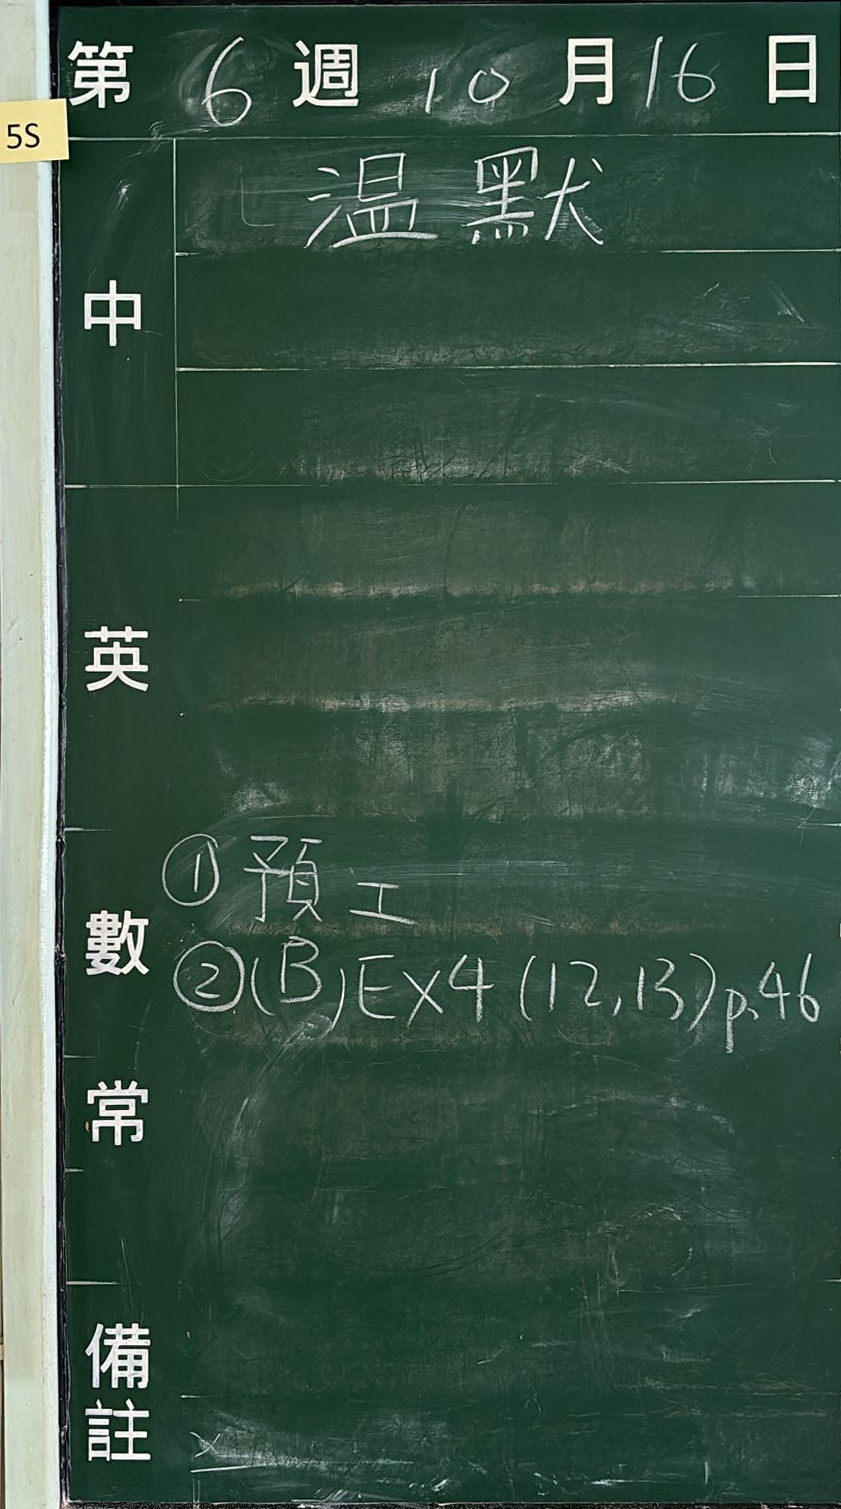 第 6 週 10 月 16 日
5S
中
温 默
英
數
① 預 工
② (B) EX4 (12,13) p.46
常
備註